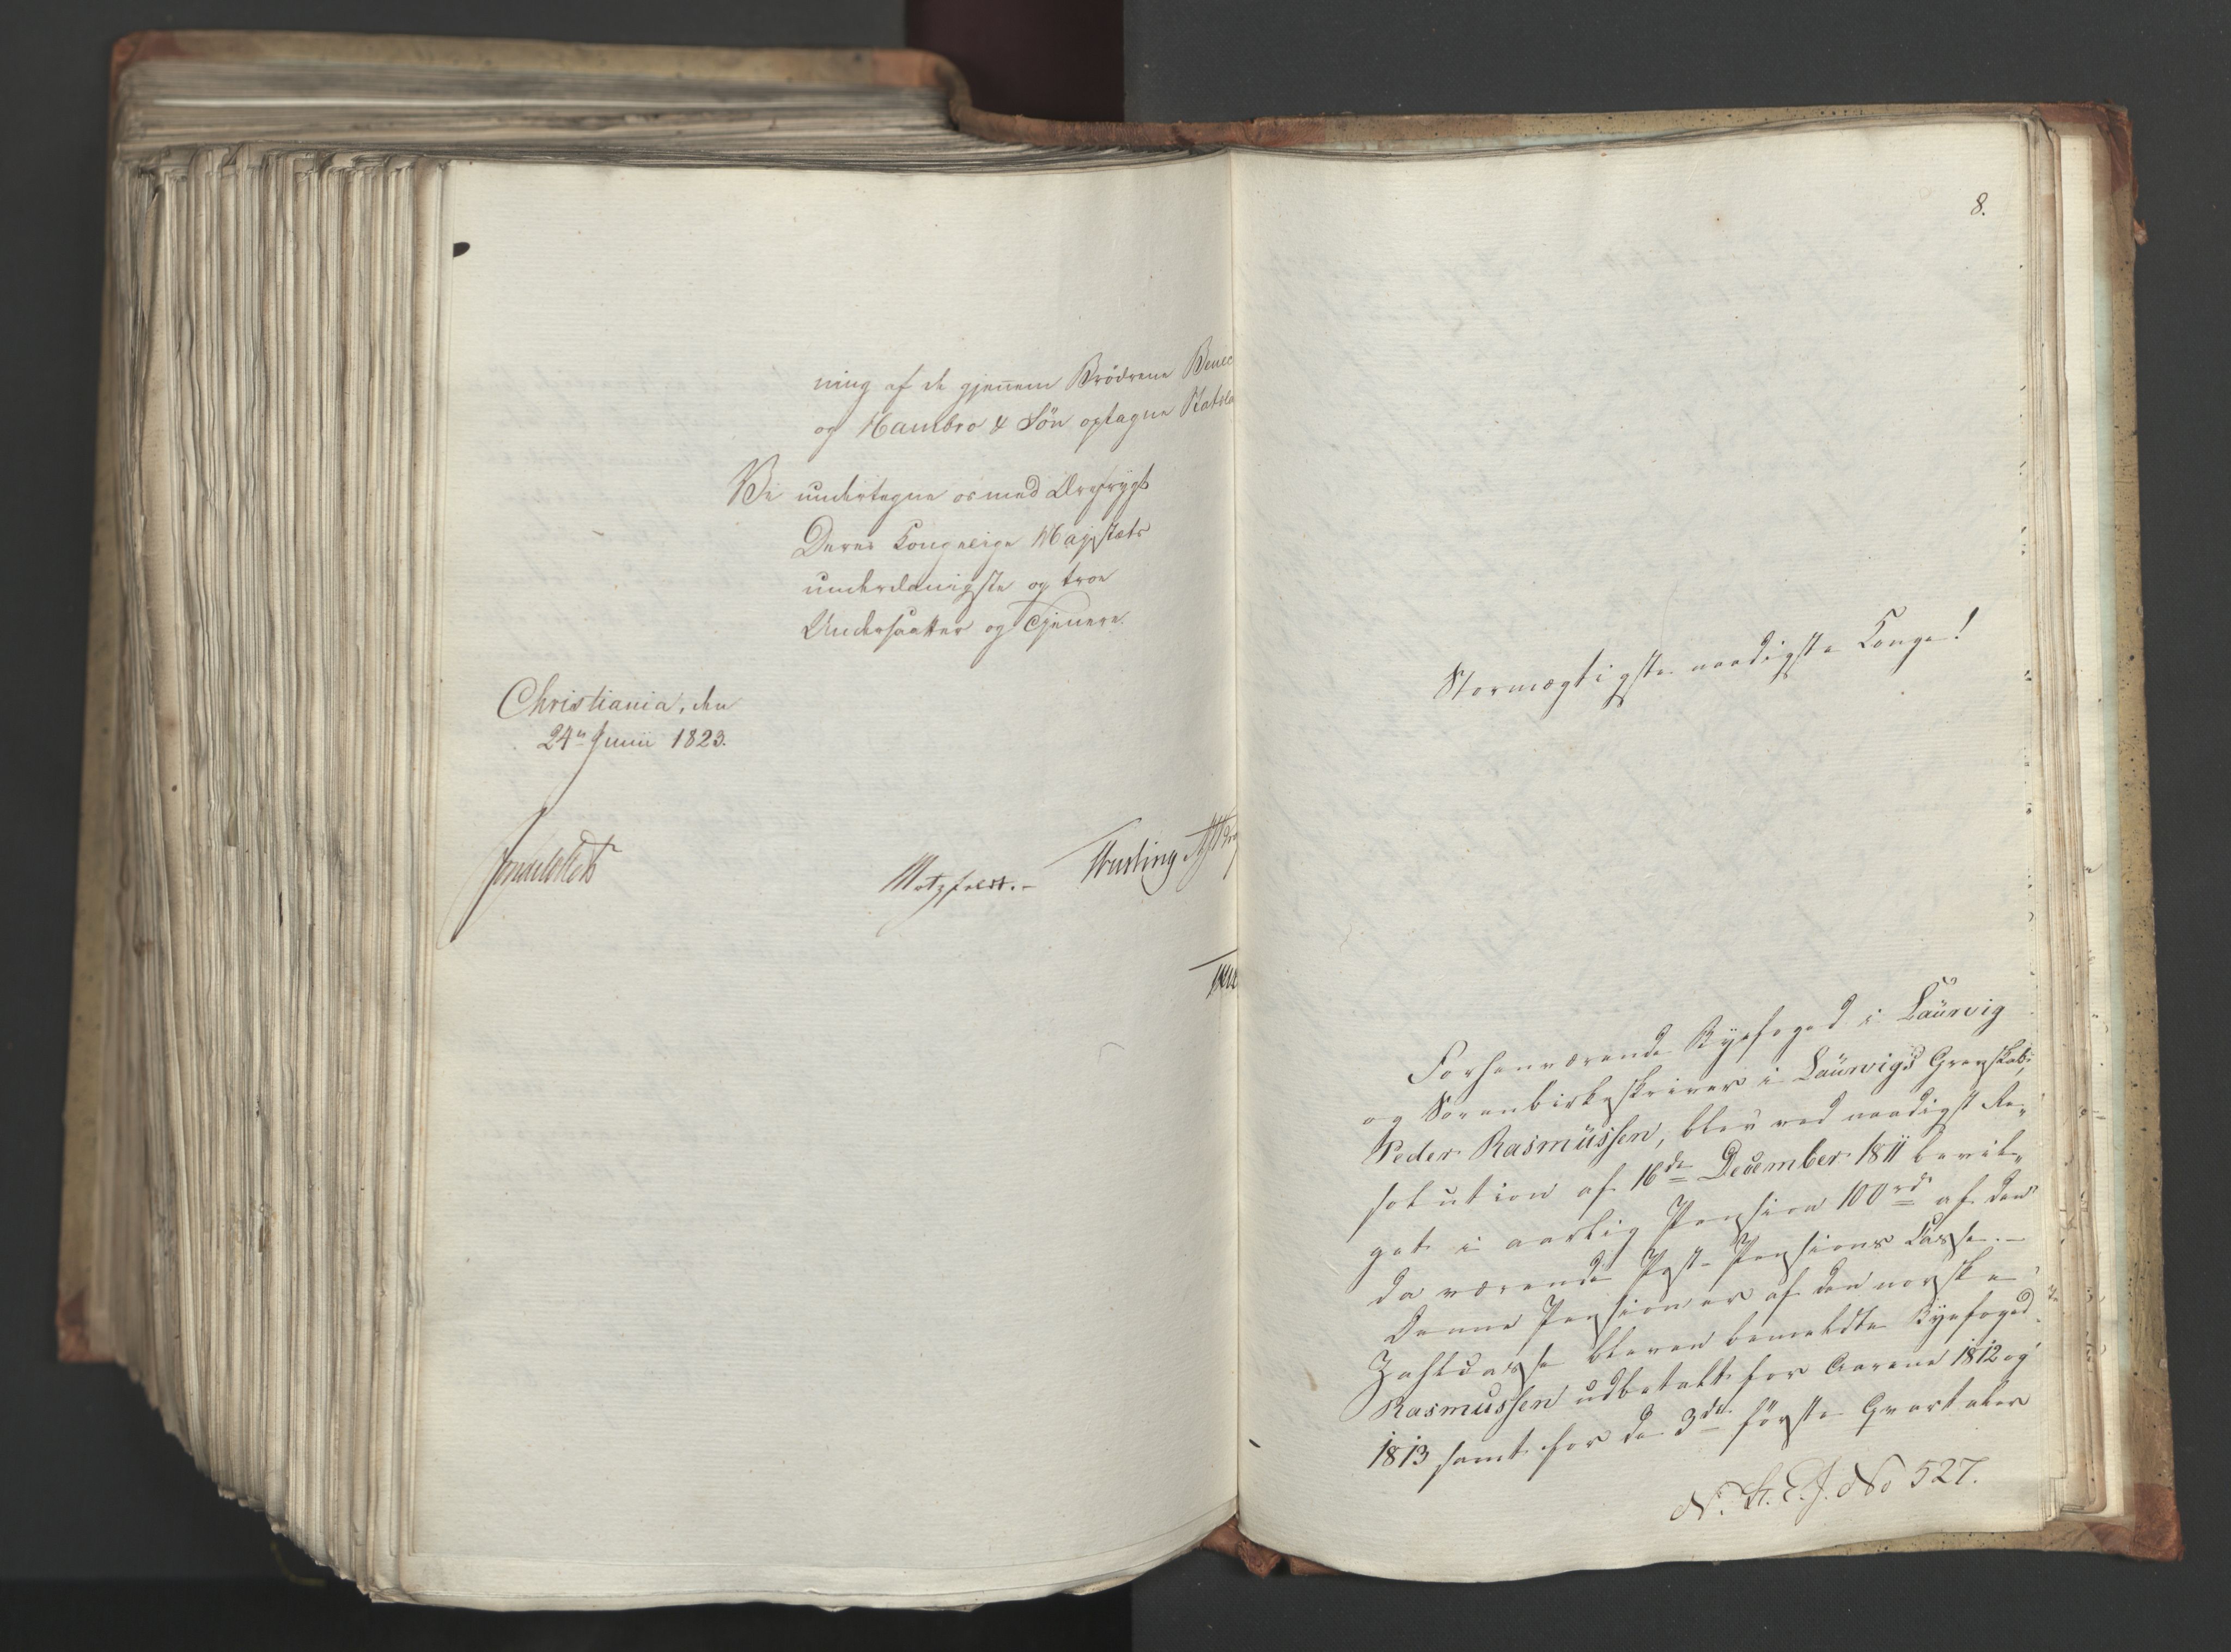 ning af de gjennem Brødrene Benec
og Hambro & Søn optagne Statsla
Vi undertegne os med Ærefrygt
Deres Kongelige Majestæts
underdanigste og troe
Undersaatter og Tjenere.
Christiania, den
24n Junii 1823.
Sommerhielm
Motzfeldt.
8.
Stormægtigste naadigste Konge!
Forhenværende Byefoged i Laurvig
og Sorenbirkeskriver i Laurvigs Grevskab,
Peder Rasmüssen, blev ved naadigst Re-
solution af 16de December 1811 bevil-
get i aarlig Pension 100 rd af den
da værende Post-Pensions Casse.
Denne Pension er af den norske
Zahlcasse bleven bemeldte Byefoged
Rasmussen udbetalt for Aarene 1812 og
1813 samt for de 3de første Qvartaler
N. St. E. J. No 527.